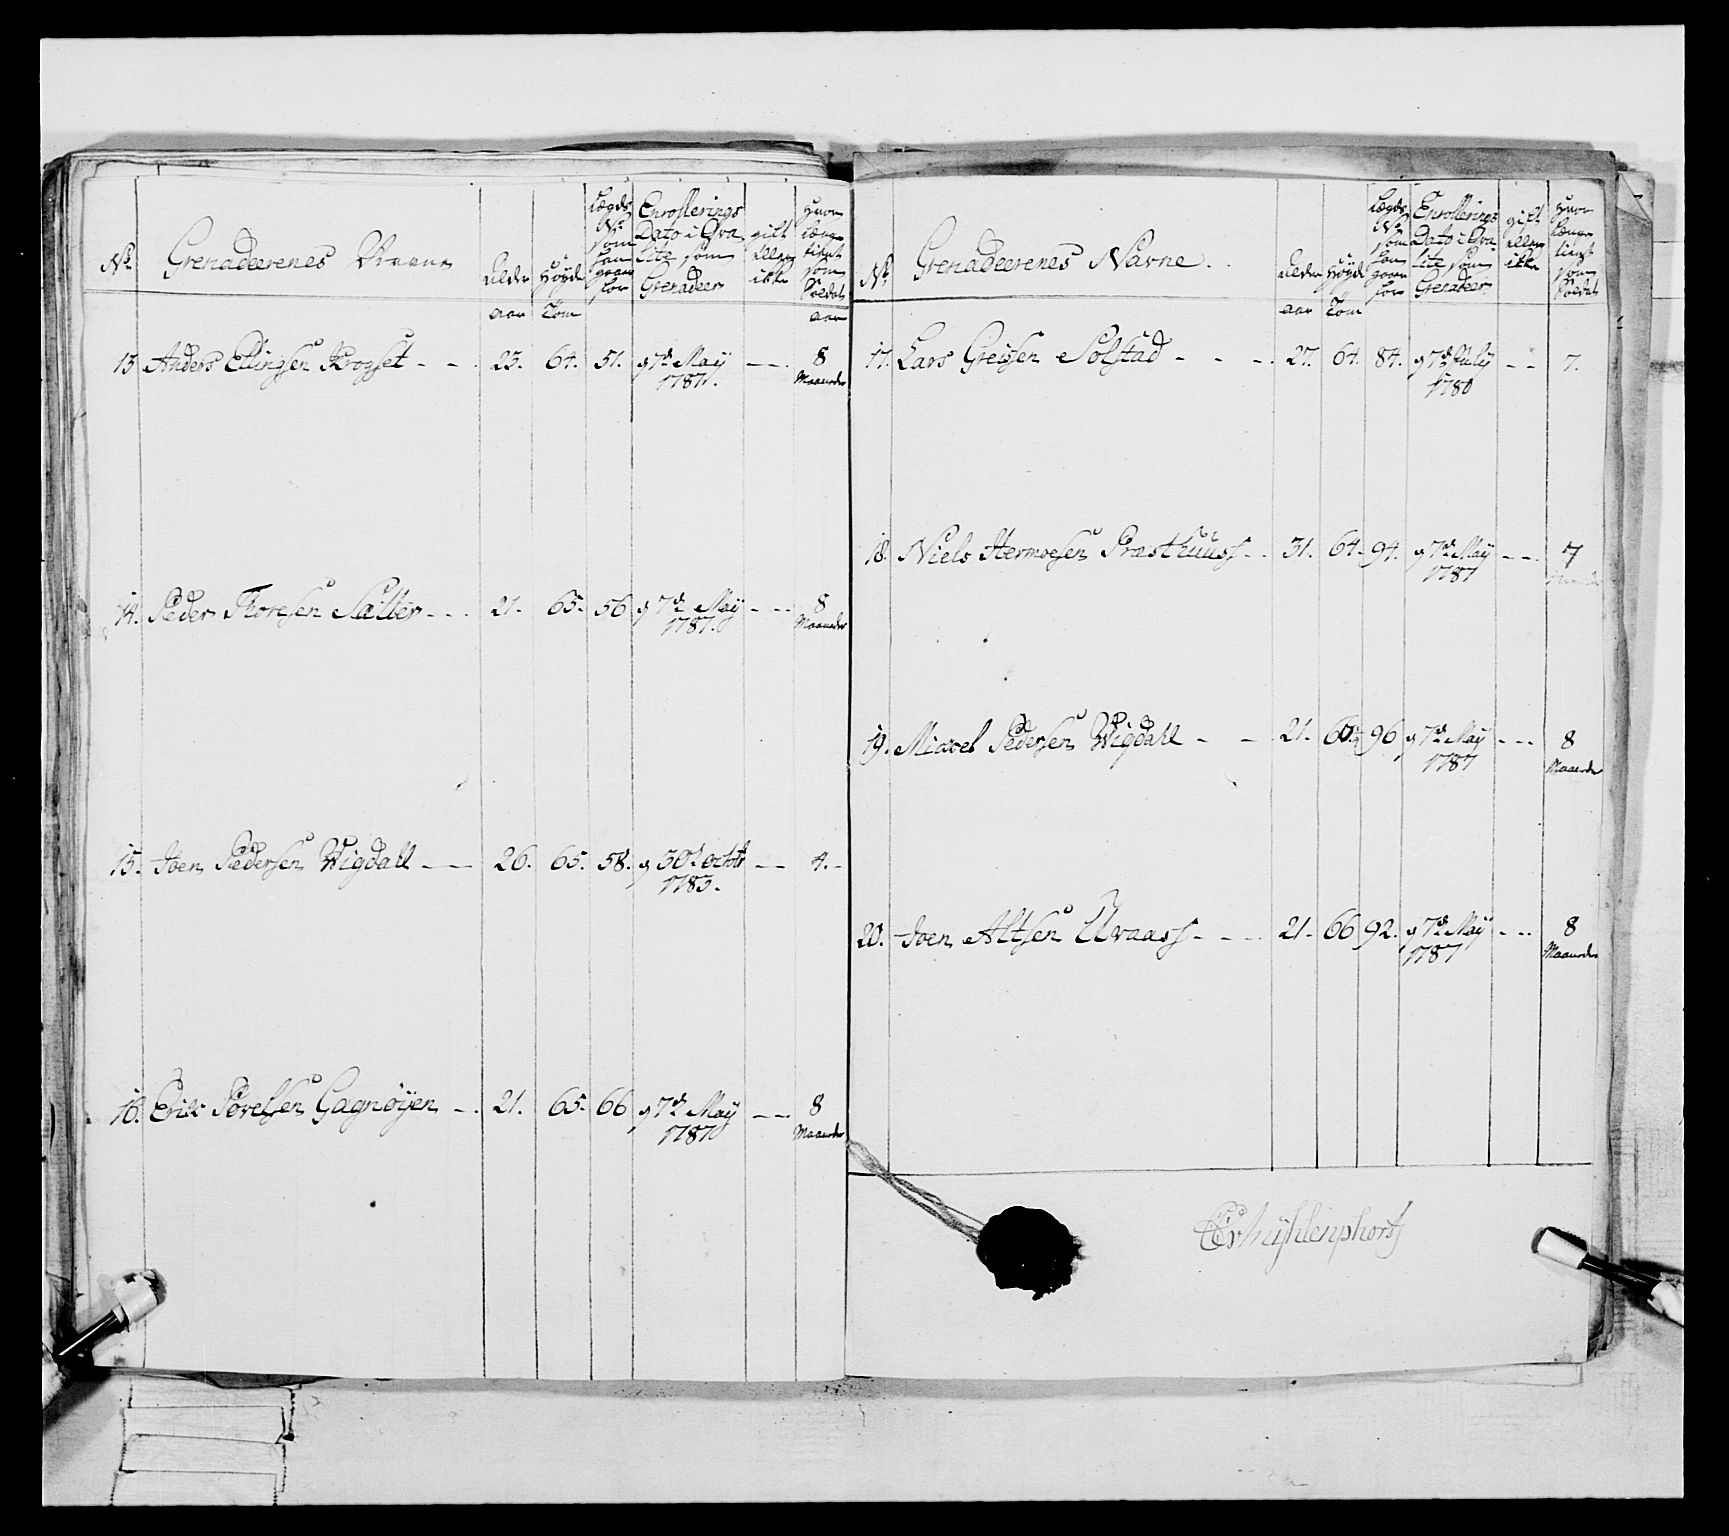 No. Grenadeerenes Navne Alder Høyde Lægds No. som han gaaer for Enrollerings Dato i Qvalite som Grenadeer gift eller ikke Hvor længe tient som Soldat
aar Tom aar
13. Anders Ellingsen Krogset - - 23. 64. 51. 7de May - - 8
1787. Maaneder
14. Peder Thoresen Sætter - - - 21. 65. 56 7de May - - - 8
1787. Maaneder
15. Joen Pedersen Wigdall - - 26. 65. 58. 30te octobr - - 4. -
1783.
16. Erik Povelsen Gagnöyen - . 21. 65. 66 7de May - - - 8
1787 Maaneder
No. Grenadeerenes Navne. Alder Høyde Lægds No. som han gaaer for Enrollerings Dato i Qvalite som Grenadeer gift eller ikke Hvor længe tient som Soldat
aar Tom
17. Lars Greisen Solstad - - - 27. 64. 84. 7de July - - 7.
1780
18. Niels Hermoesen Præsthuus - . 31. 64. 94. 7de May - - . 7
1787
19. Mickel Pedersen Wigdahl - - 21. 96 7de May - - - 8
1787 Maaneder
20. Joen Altsen Uvaas - - - 21. 66 92. 7de May - - - 8
1787 Maaneder